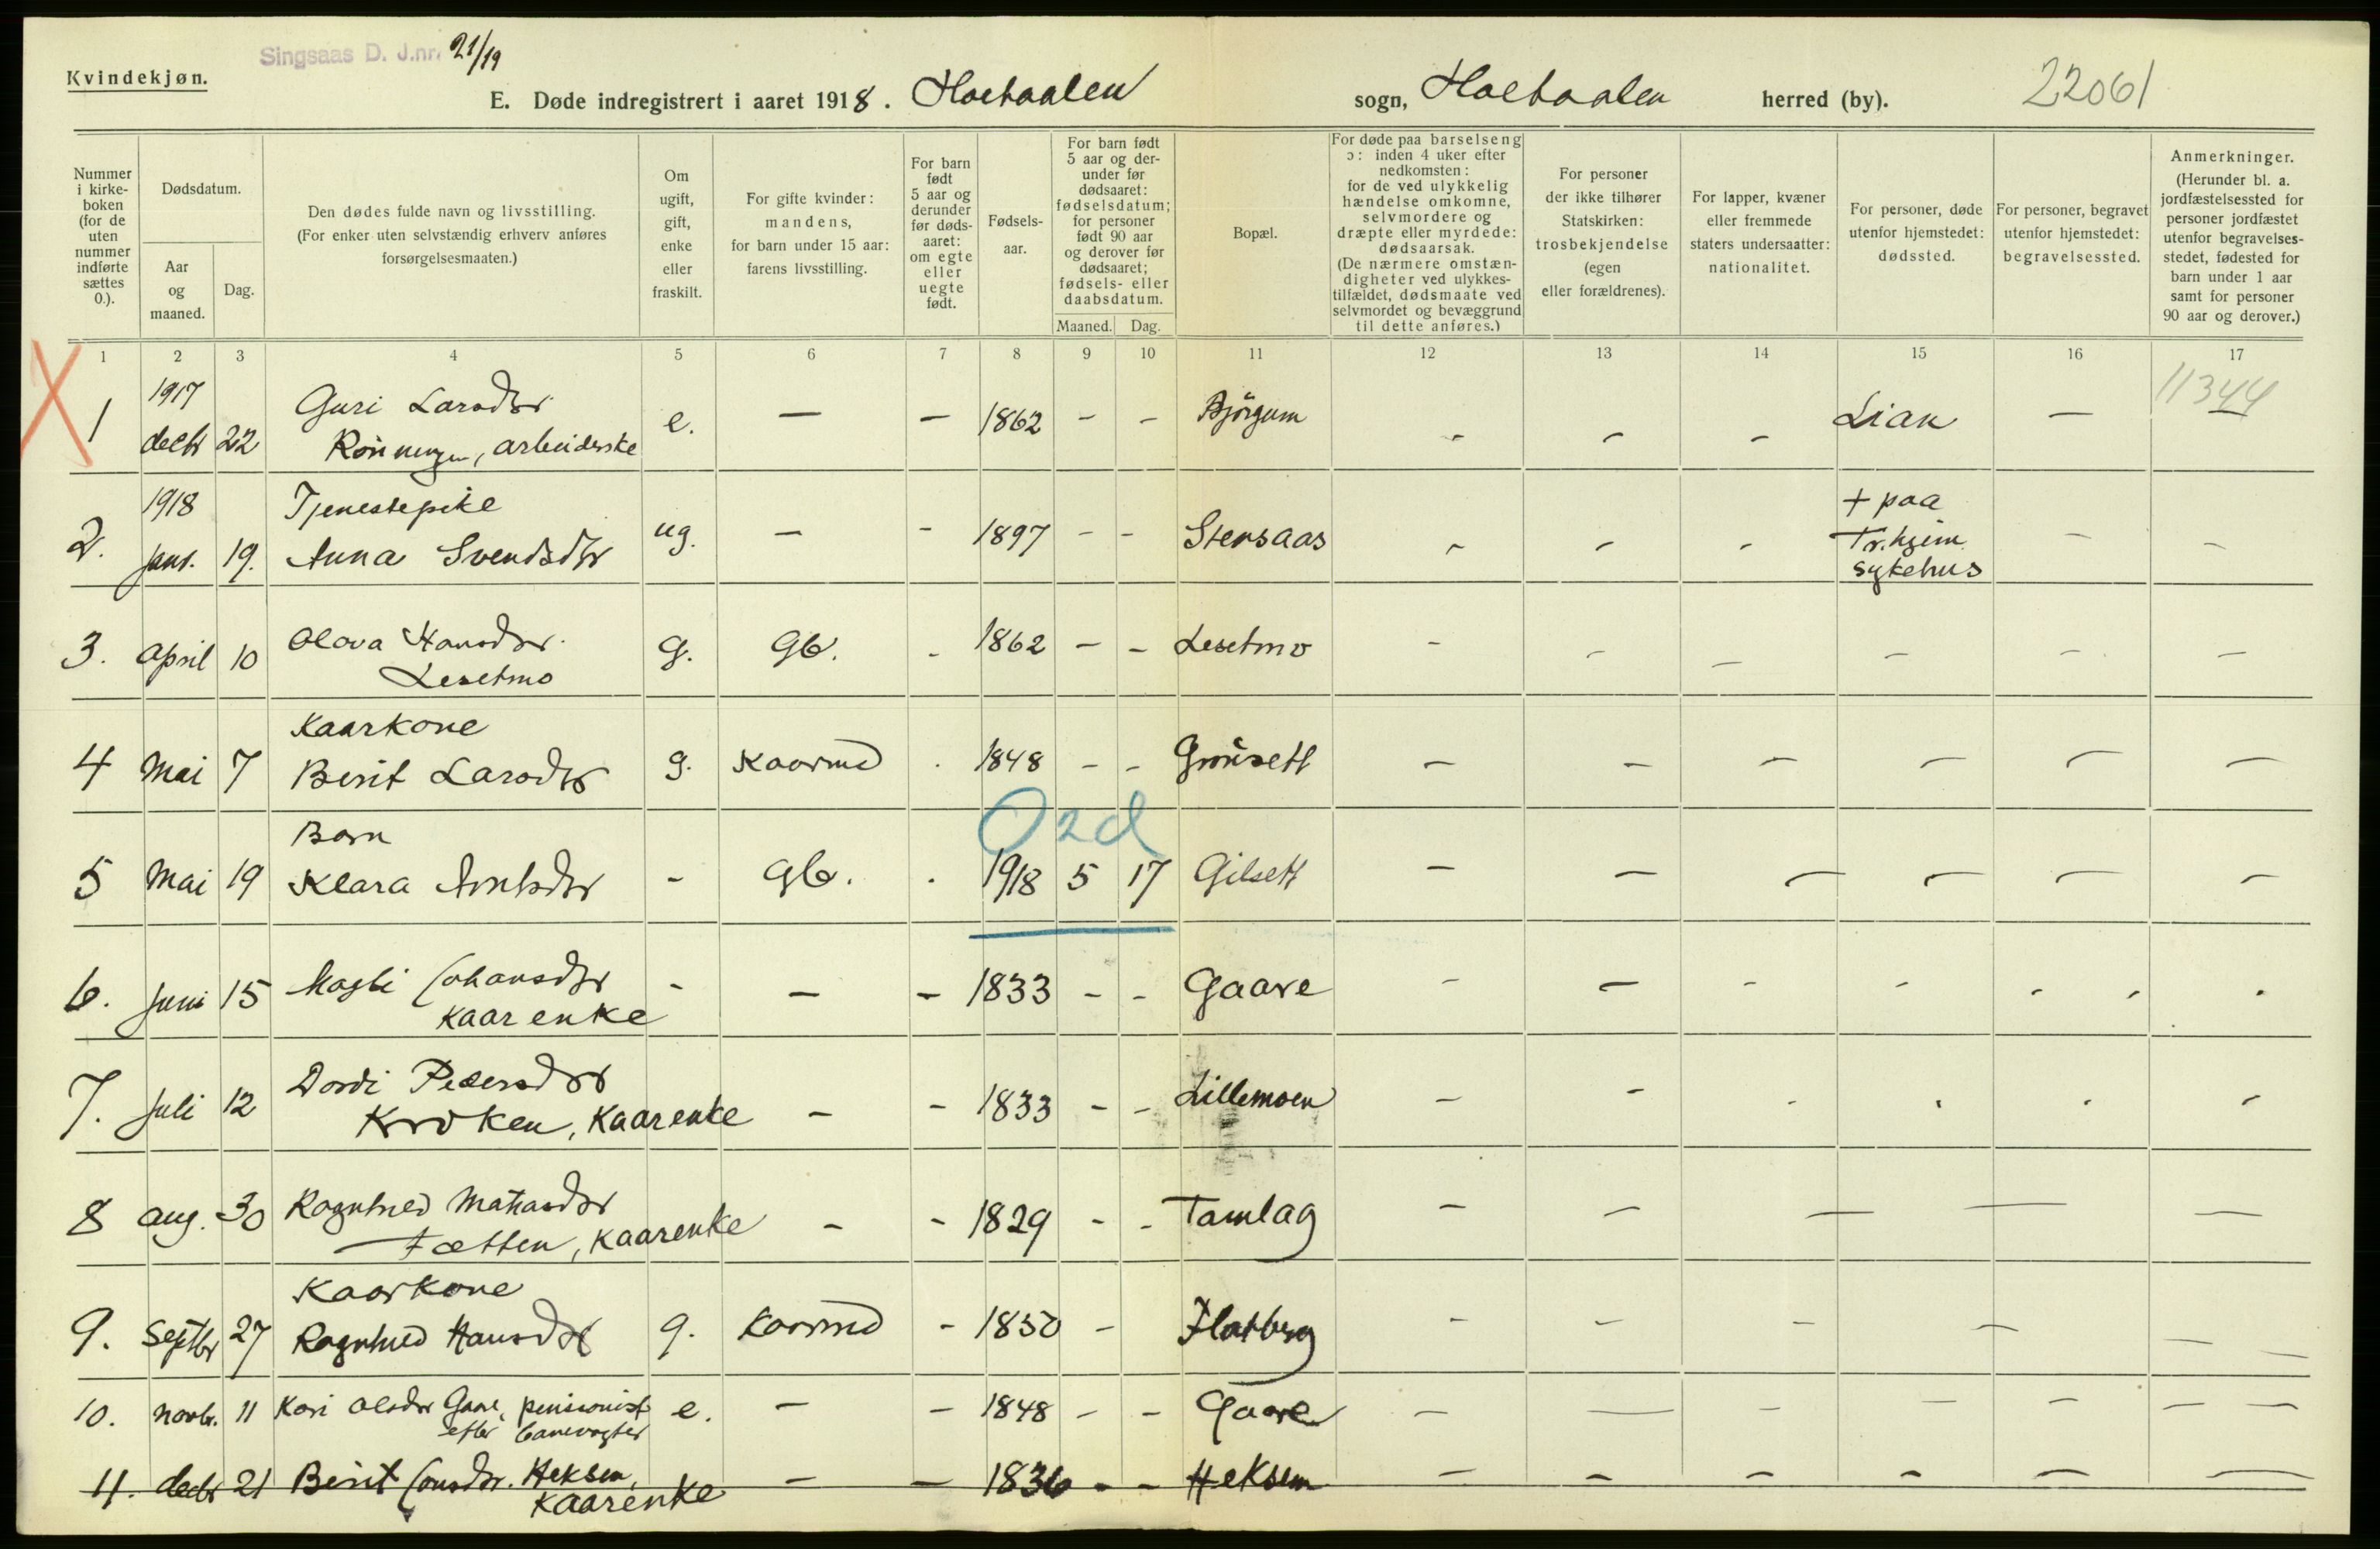 Singsaas D. J.nr. 21/19
Kvindekjøn.
E. Døde indregistrert i aaret 1918. Holtaalen sogn, Holtaalen herred (by). 22061
Nummer i kirke-boken (for de uten nummer indførte sættes 0.).
Dødsdatum.
Aar og maaned.
Dag.
Den dødes fulde navn og livsstilling.
(For enker uten selvstændig erhverv anføres
forsørgelsesmaaten.)
Om ugift, gift, enke eller fraskilt.
For gifte kvinder: mandens, for barn under 15 aar: farens livsstilling.
For barn født 5 aar og derunder før døds-aaret: om egte eller uegte født.
Fødsels-aar.
For barn født 5 aar og der-under før dødsaaret: fødselsdatum; for personer født 90 aar og derover før dødsaaret; fødsels- eller daabsdatum.
Maaned. Dag.
Bopæl.
For døde paa barselseng ɔ: inden 4 uker efter nedkomsten: for de ved ulykkelig hændelse omkomne, selvmordere og dræpte eller myrdede: dødsaarsak. (De nærmere omstæn-digheter ved ulykkes-tilfældet, dødsmaate ved selvmordet og bevæggrund til dette anføres.)
For personer der ikke tilhører Statskirken: trosbekjendelse (egen eller forældrenes).
For lapper, kvæner eller fremmede staters undersaatter: nationalitet.
For personer, døde utenfor hjemstedet: dødssted.
For personer, begravet utenfor hjemstedet: begravelsessted.
Anmerkninger. (Herunder bl. a. jordfæstelsessted for personer jordfæstet utenfor begravelses-stedet, fødested for barn under 1 aar samt for personer 90 aar og derover.)
1 2 3 4 5 6 7 8 9 10 11 12 13 14 15 16 17
11344
1 1917 decbr 22 Guri Larsdtr Rönningen, arbeiderske e. — — 1862 - - Bjørgum - - - Lian —
2. 1918 janr. 19. Tjenestepike Anna Svendsdtr ug. — - 1897 - - Stensaas - - - + paa Tr.hjem sykehus - -
3. april 10 Olava Hansdtr. Lesetmo g. gb. - 1862 - - Lesetmo - - - - - -
4 Mai 7 Kaarkone Berit Larsdtr g. Kaarmd . 1848 - - Grønsett - - - - - -
Ozd
5 Mai 19 Barn Klara Arntsdtr - gb. . 1918 5 17 Gilsett - - - - - -
6. Juni 15 Magli Johansdtr Kaarenke - — - 1833 - - Gaare - - - - - -
7. Juli 12 Dordi Pedersdtr Kroken, Kaarenke - - 1833 - - Lillemoen - - - - - -
8 aug. 30 Ragnhild Matiasdtr Tætten, Kaarenke - - 1829 - - Tamlag - - - - -
9. Septbr 27 Kaarkone Ragnhild Hansdtr g. Kaarmd - 1850 - Flatberg - - - - - -
10. novbr. 11 Kari Olsdtr Gaare, pensionist efter banevogter e. - - 1848 - - Gaare - - - - - - -
11. decbr 21 Berit Jonsdtr. Heksem, Kaarenke - - 1836 - - Heksem - - - - - -